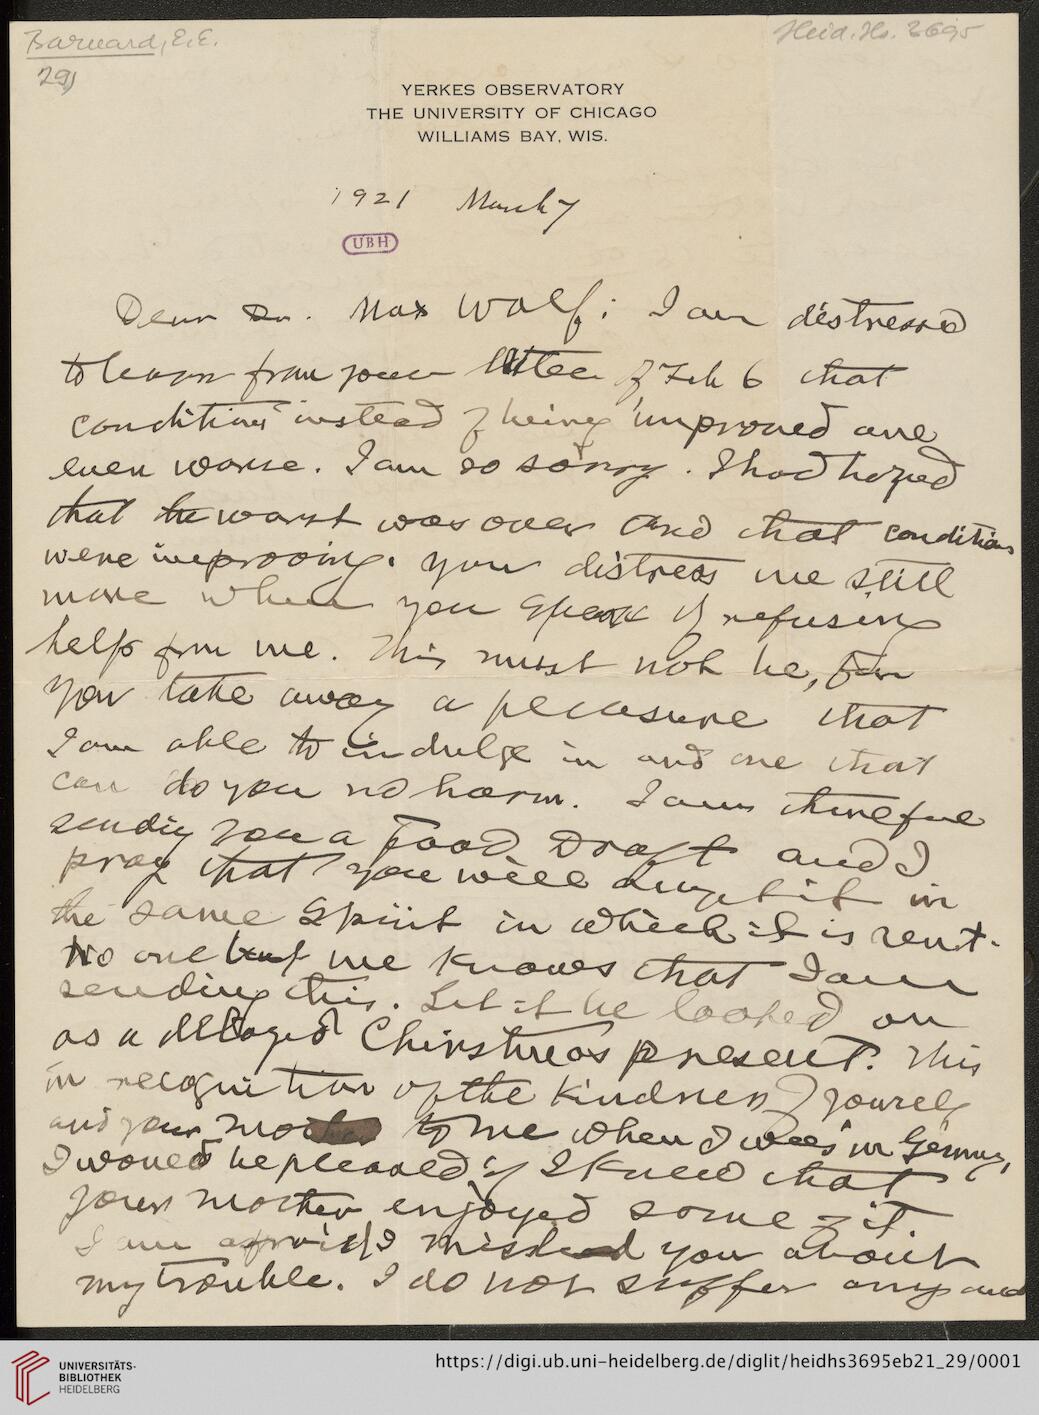 Barnard, E. E.
Heid. Hs. 3695
29)
YERKES OBSERVATORY
THE UNIVERSITY OF CHICAGO
WILLIAMS BAY, WIS.
1921 March 7
UBH
Dear Dr. Max Wolf; I am distressed
to learn from your letter of Feb 6 that
conditions instead of being improved are
even worse. I am so sorry. I had hoped
that the worst was over and that conditions
were improving. You distress me still
more when you speak of refusing
help from me. This must not be, for
you take away a pleasure that
I am able to indulge in and one that
can do you no harm. I am therefore
sending you a Food Draft and I
pray that you will accept it in
the same spirit in which it is sent.
No one but me knows that I am
sending this. Let it be looked on
as a delayed Christmas present. This
in recognition of the kindness of yourself
and your mother to me when I was in Germany,
I would be pleased if I knew that
your mother enjoyed some of it.
I am afraid I mislead you about
my trouble. I do not suffer any and
UNIVERSITÄTS-
BIBLIOTHEK
HEIDELBERG
https://digi.ub.uni-heidelberg.de/diglit/heidhs3695eb21_29/0001